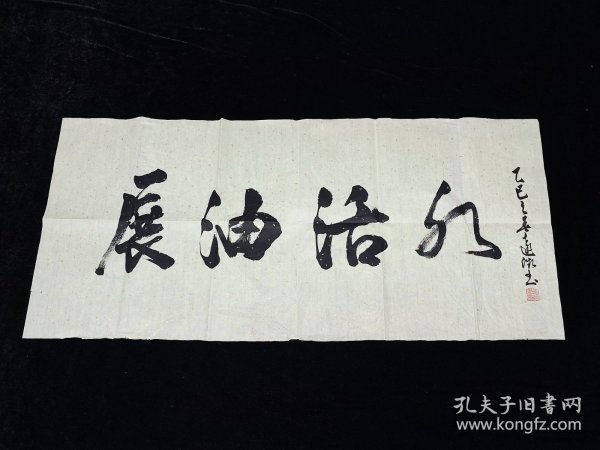 展油活
乙巳之春
孔夫子旧書网
www.kongfz.com